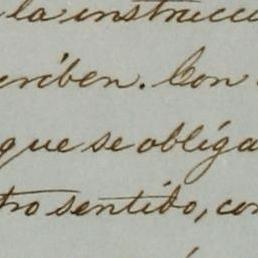 la instrucci
criben. Con
que se obliga
tro sentido, con